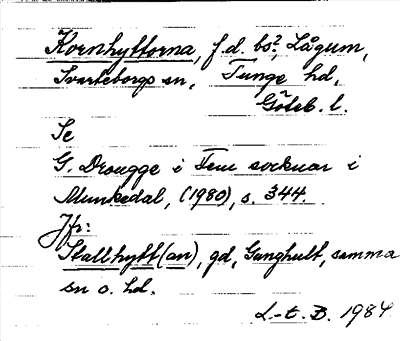 Kornhyttorna, f.d. bs?, Lågum,
Svarteborgs sn, Tunge hd,
Göteb. l.
Se
G. Drougge i Fem socknar i
Munkedal, (1980), s. 344.
Jfr:
Stallhytt(an), gd, Gunghult, samma
sn o. hd.
L-t. B. 1984